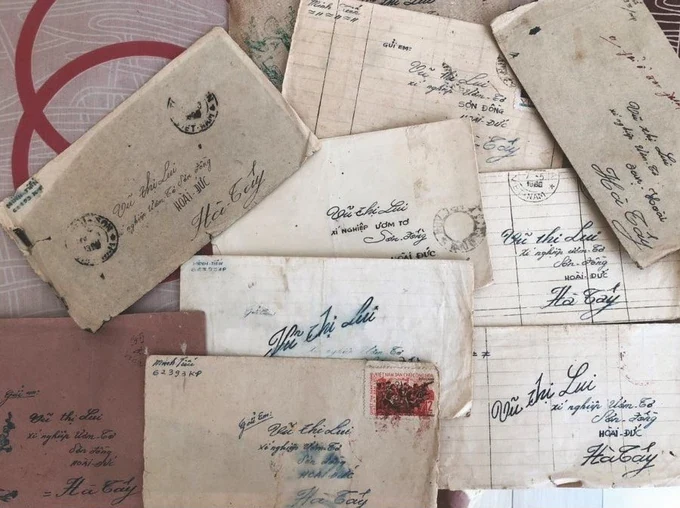 Minh Tiến
GỬI EM:
Vũ Thị Lui
xí nghiệp Ươm Tơ
SƠN ĐỒNG
HOÀI-ĐỨC
VIỆT-NAM
Vũ Thị Lui
xí nghiệp Ươm Tơ Sơn Đồng
HOÀI-ĐỨC
Hà Tây
Vũ Thị Lui
xí nghiệp Ươm Tơ
Sơn Đồng
Hà Tây
Vũ Thị Lui
XÍ NGHIỆP ƯƠM TƠ
Sơn-Đồng
HOÀI ĐỨC
1986
Vũ Thị Lui
xí nghiệp Ươm Tơ
Sơn-Đồng
HOÀI-ĐỨC
Hà Tây
Vũ Thị Lui
Minh Tiến
62393KP
Gửi Em:
Vũ Thị Lui
xí nghiệp Ươm Tơ
Sơn Đồng
HOÀI ĐỨC
Hà Tây
Vũ Thị Lui
xí nghiệp Ươm-Tơ
Sơn-Đồng
HOÀI-ĐỨC
Hà Tây
Gửi em:
Vũ Thị Lui
xí nghiệp Ươm Tơ
Sơn Đồng
HOÀI-ĐỨC
= Hà Tây